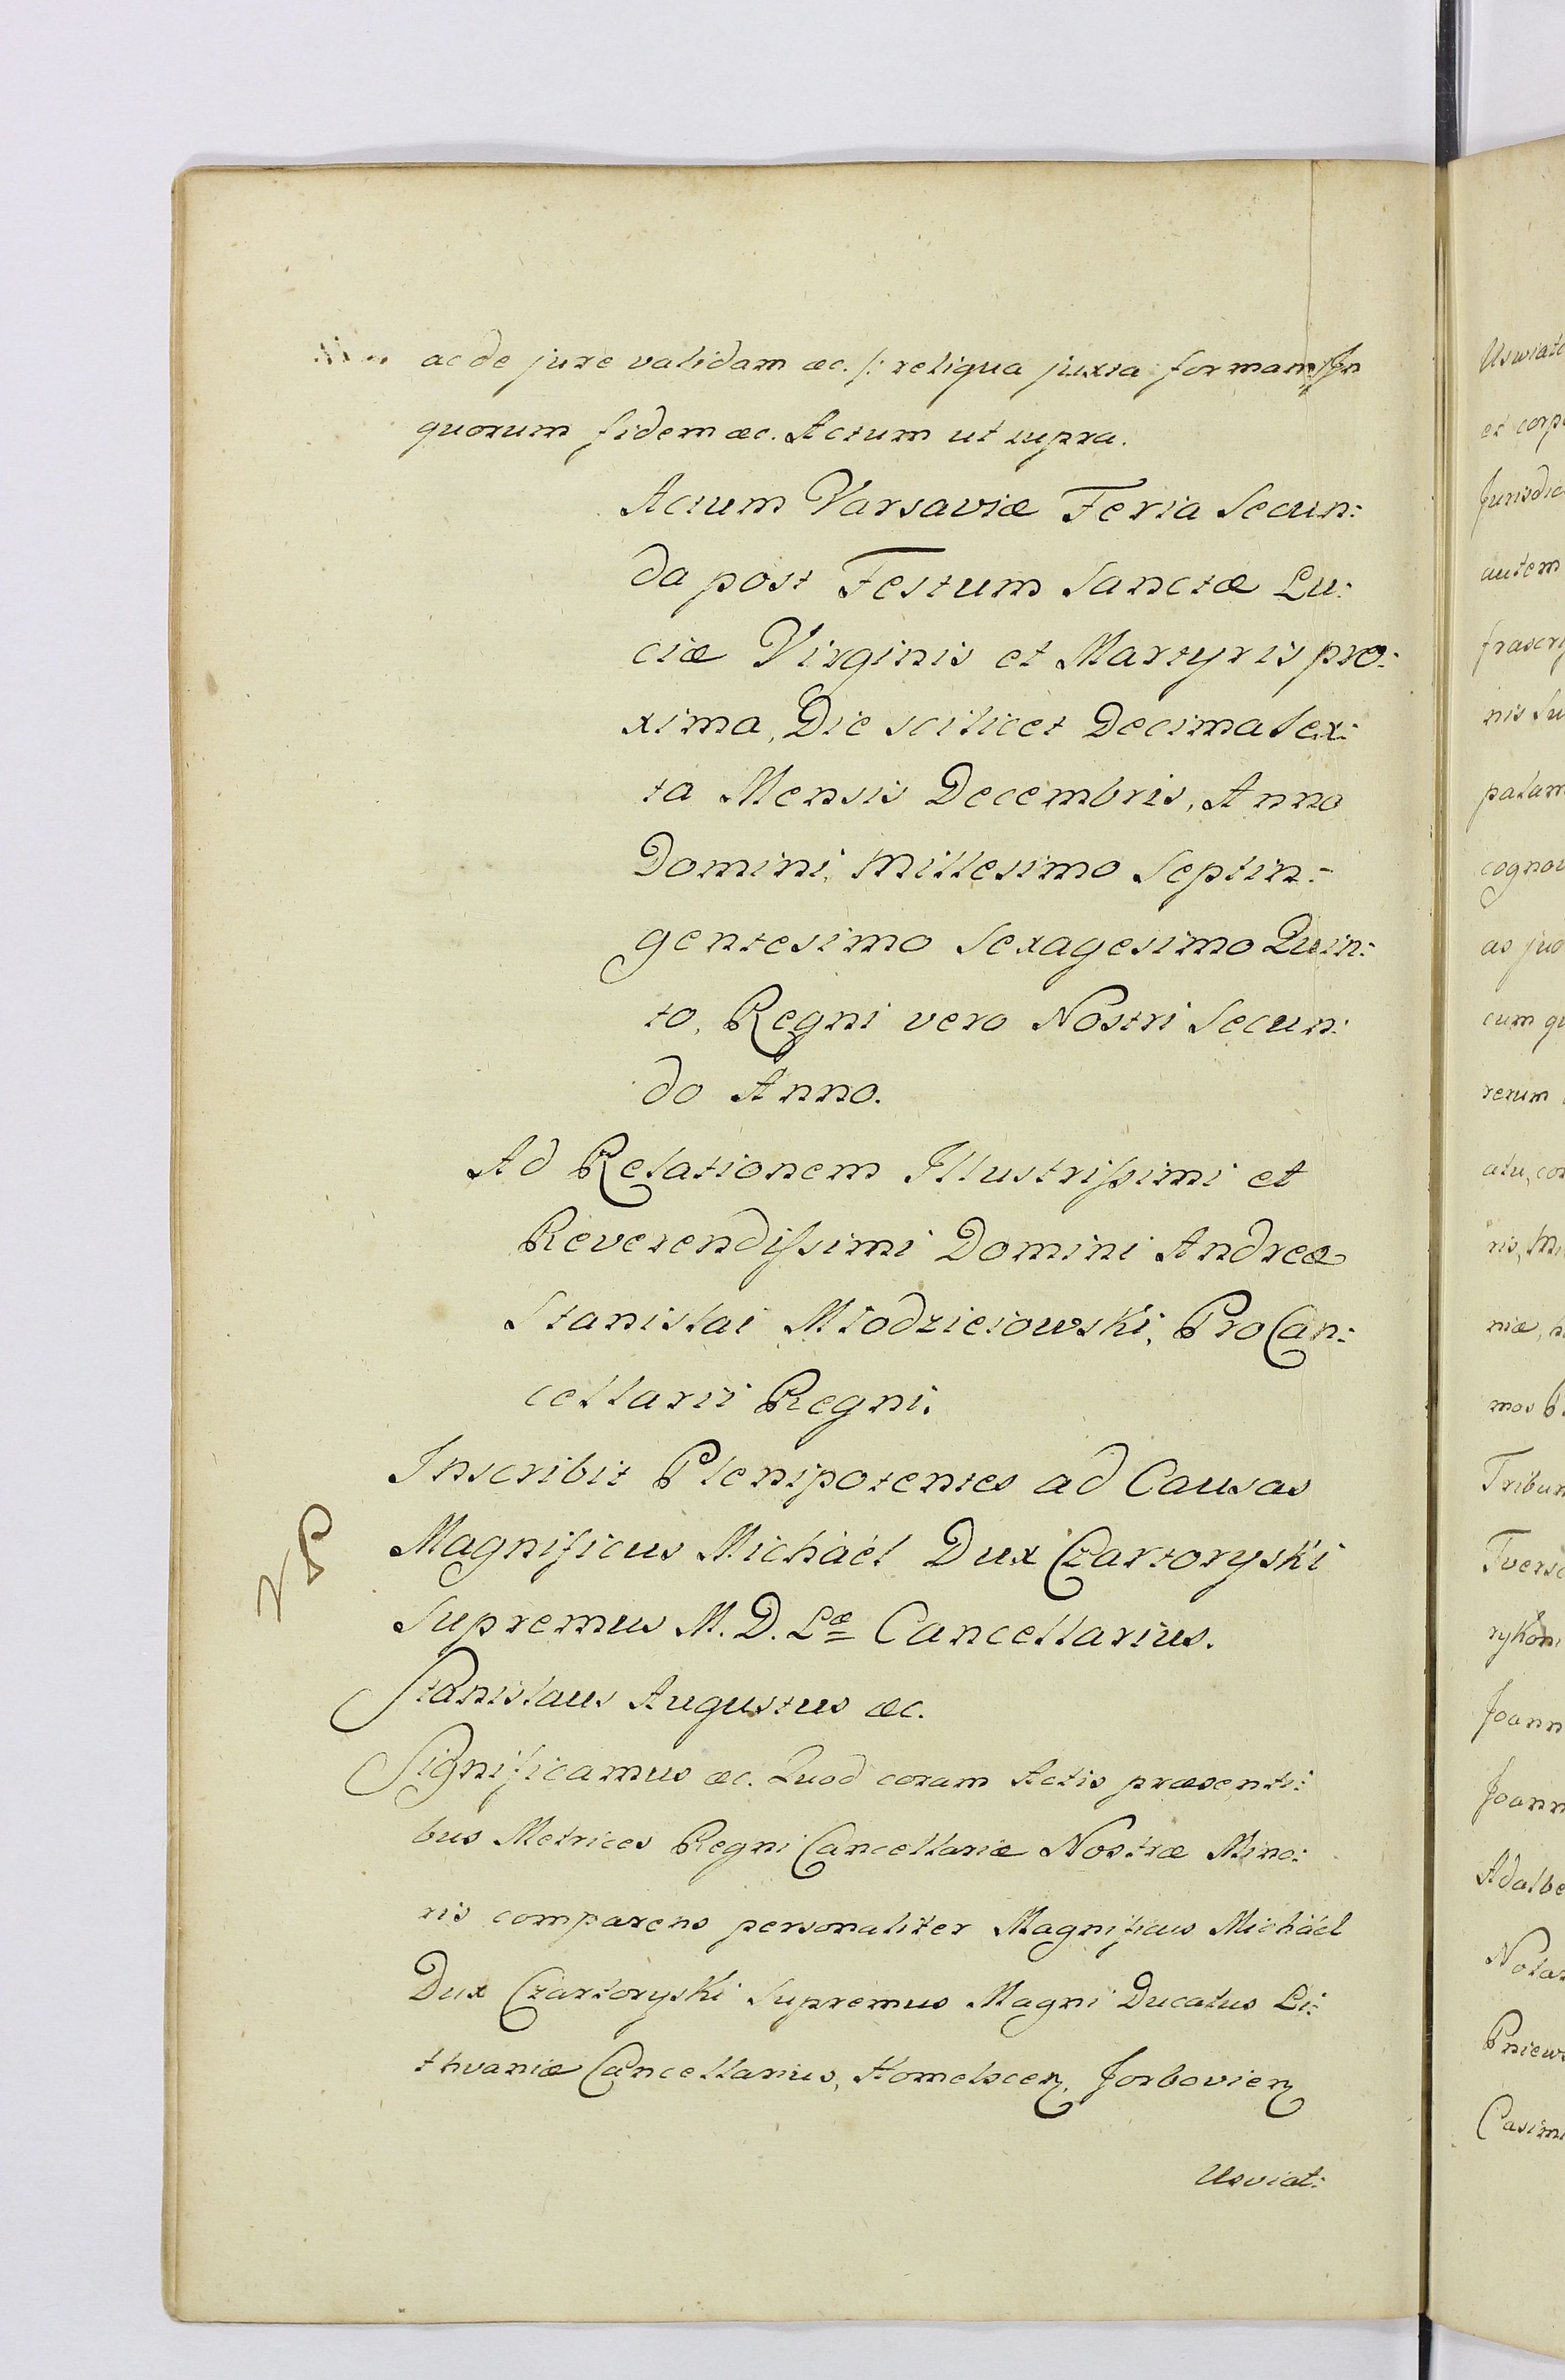 ac de jure validam æc. /: reliqua juxta formam :/ In
quorum fidem æc. Actum ut supra.
Actum Varsaviæ Feria Secun:
da post Festum Sanctæ Lu:
ciæ Virginis et Martyris pro:
xima, Die scilicet Decima Sex:
ta Mensis Decembris, Anno
Domini, Millesimo Septin:
gentesimo Sexagesimo Quin:
to, Regni vero Nostri Secun:
do Anno.
Ad Relationem Illustrissimi et
Reverendissimi Domini Andreæ
Stanislai Młodzieiowski, ProCan:
cellarii Regni.
Inscribit Plenipotentes ad Causas
Magnificus Michaël Dux Czartoryski
Supremus M. D. Læ Cancellarius.
Stanislaus Augustus æc.
Significamus æc. Quod coram Actis præsenti:
bus Metrices Regni Cancellariæ Nostræ Mino:
ris comparens personaliter Magnificus Michaël
Dux Czartoryski Supremus Magni Ducatus Li:
thvaniæ Cancellarius, Homelscen, Jorbovien
Usviat:
Uswiatc
et corp
Jurisdic
autem
frascri
nis Su
palam
cognov
as juo
cum q
rerum
atu, co
ris, Mi
niæ,
mos P
Tribun
Twersc
rykoni
Joann
Joann
Adalbe
Nota
Pniews
Casimi